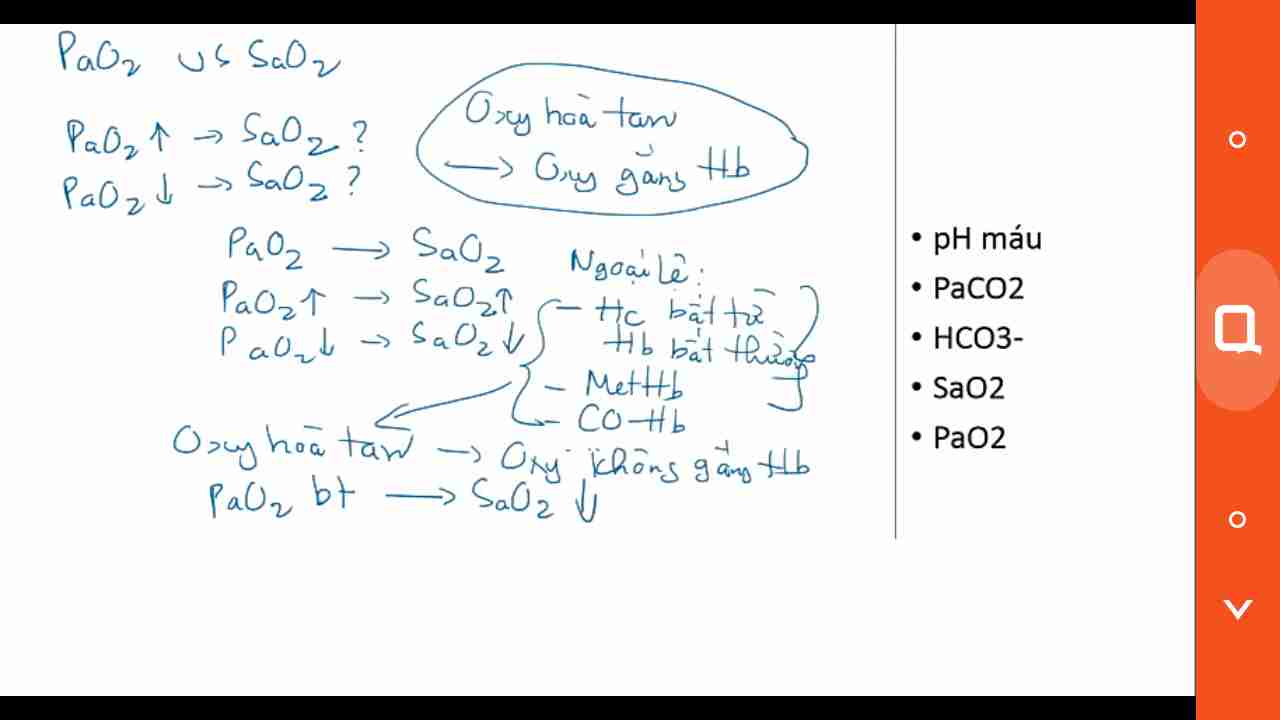 PaO2 vs SaO2
PaO2 ↑ → SaO2 ?
PaO2 ↓ → SaO2 ?
Oxy hoà tan
→ Oxy gắng Hb
PaO2 → SaO2
PaO2 ↑ → SaO2 ↑
PaO2 ↓ → SaO2 ↓
Ngoại lệ:
- Hc bất
Hb bất thường
- MetHb
- CO-Hb
Oxy hoà tan → Oxy không gắng Hb
PaO2 bt → SaO2 ↓
• pH máu
• PaCO2
• HCO3-
• SaO2
• PaO2